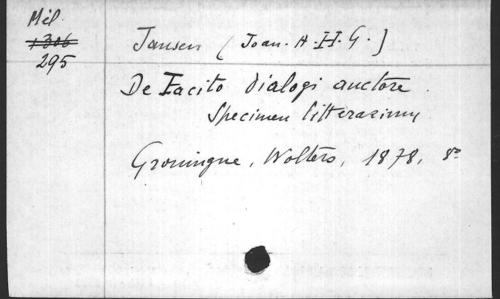 Mél.
1306
295
Jansen (Joan. H. H. G.)
De Tacito dialogi auctore.
Specimen litterarium
Groningue, Wolters, 1878, 8º